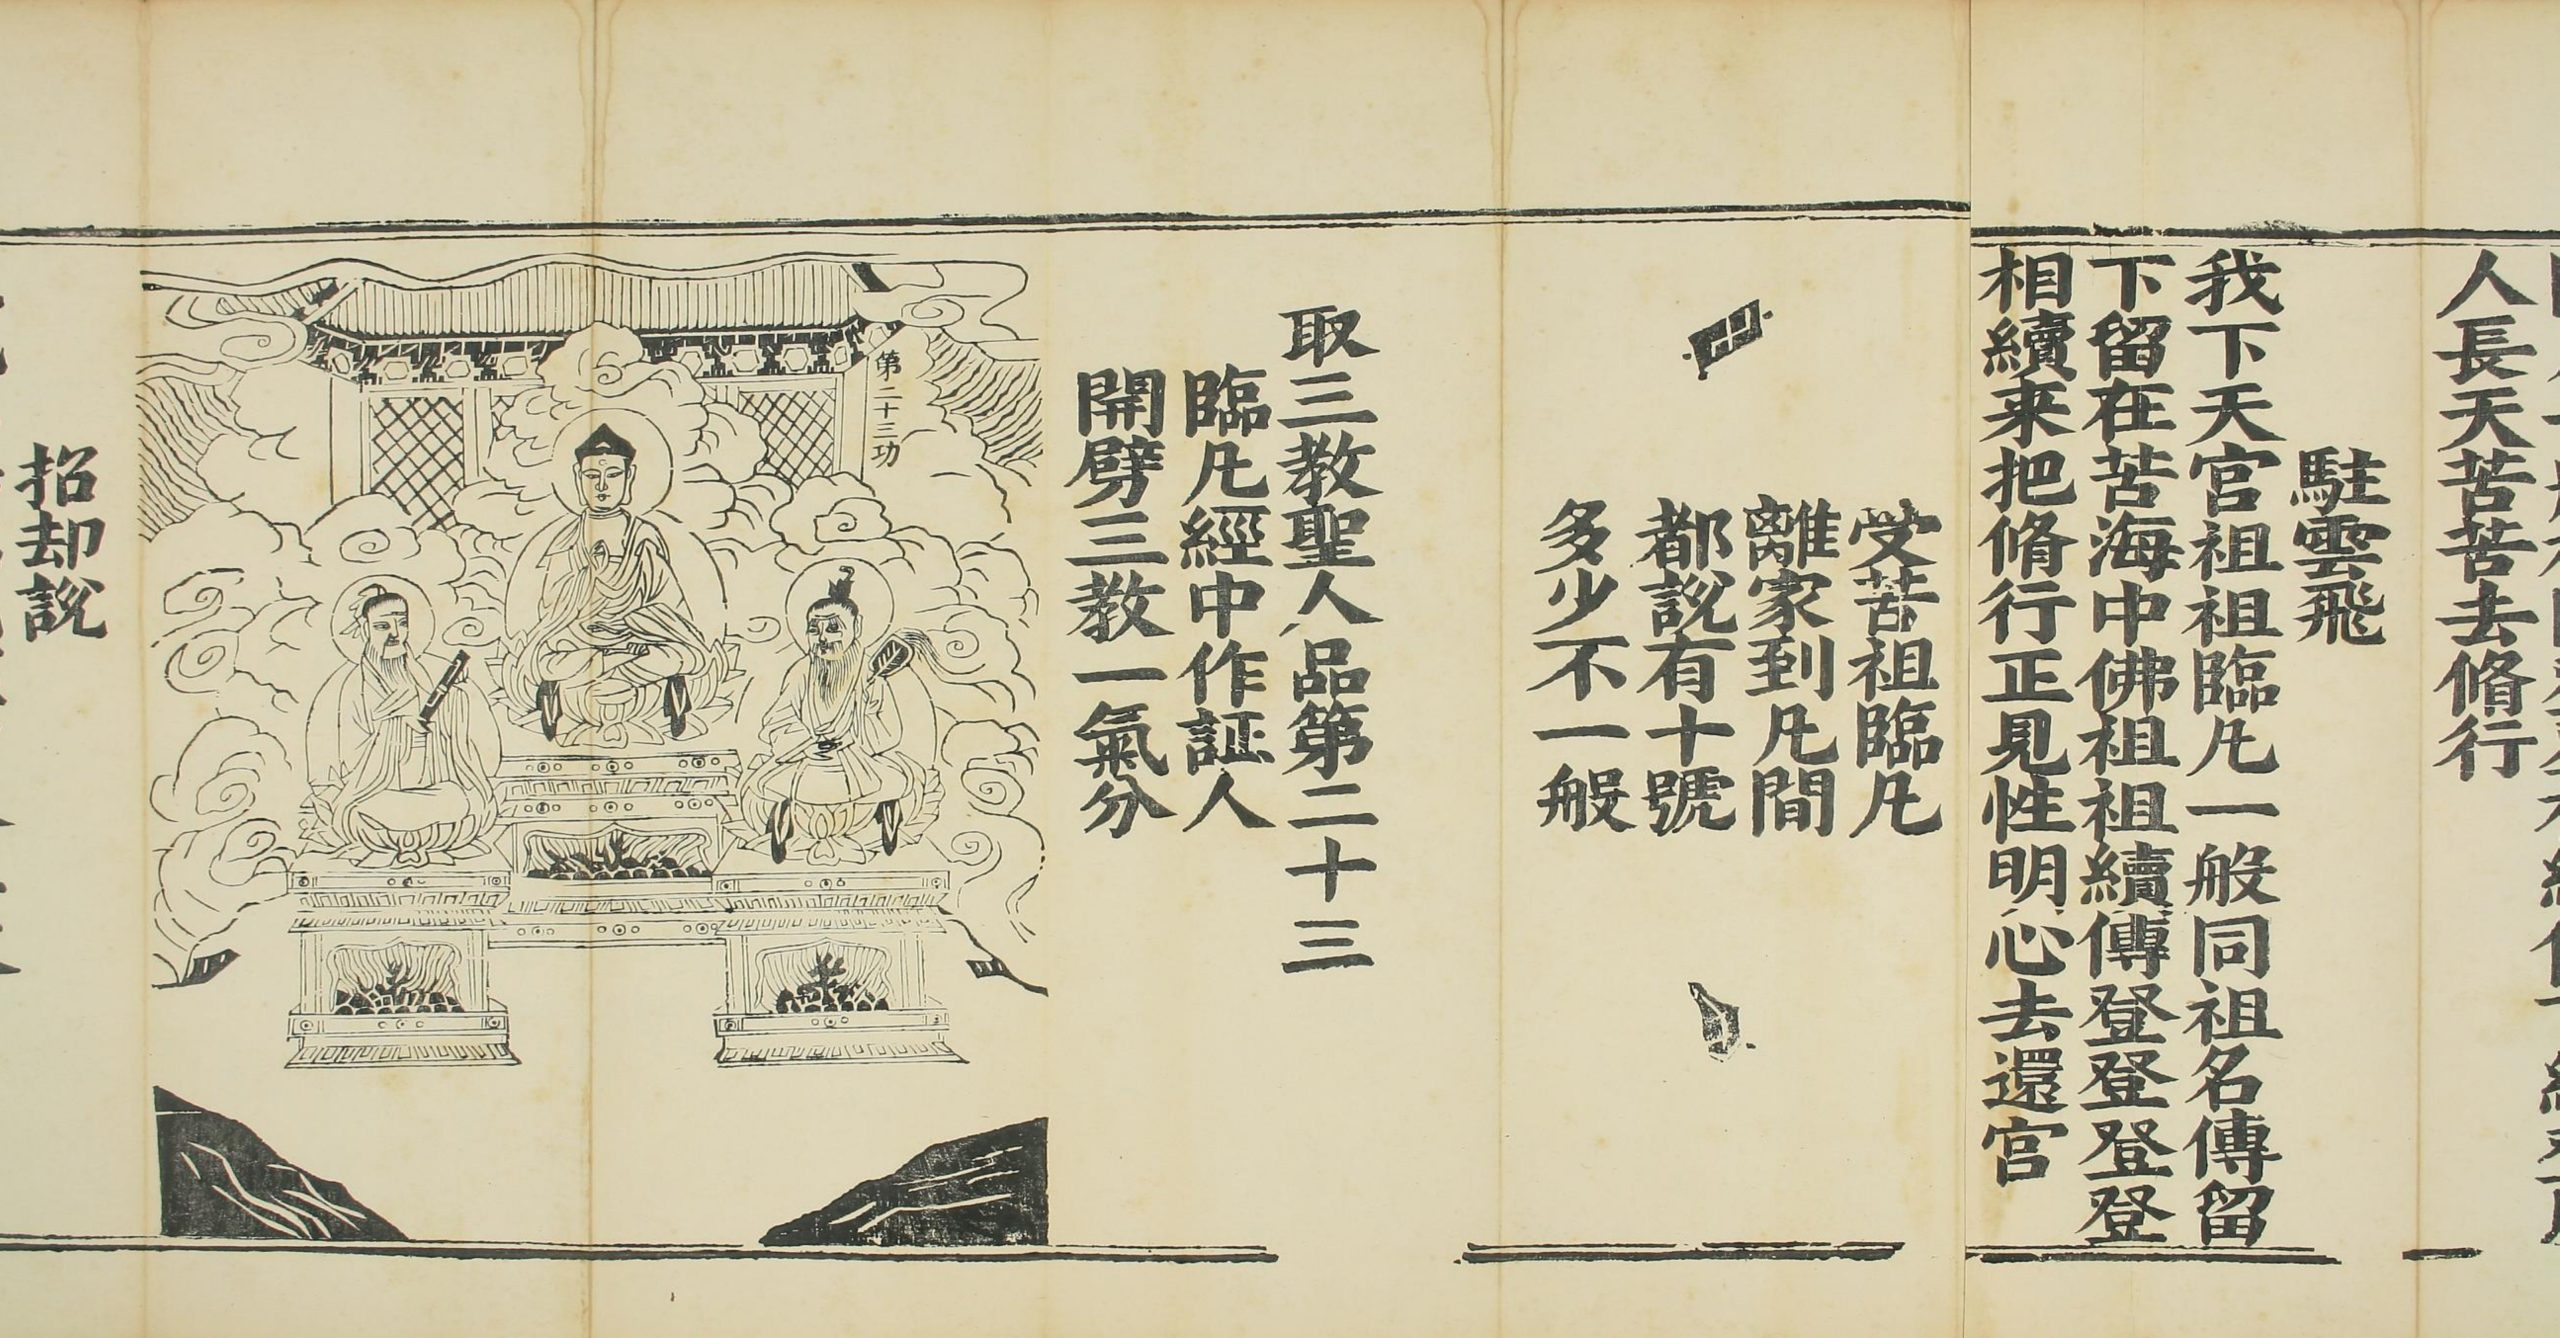 人長天苦苦去脩行
駐雲飛
我下天宫祖祖臨凡一般同祖名傳留
下留在苦海中佛祖祖續傳登登登登
相續来把脩行正見性明心去還宫
受苦祖臨凡
離家到凡間
都說有十號
多少不一般
取三教聖人品第二十三
臨凡經中作証人
開劈三教一氣分
第二十三功
招却說